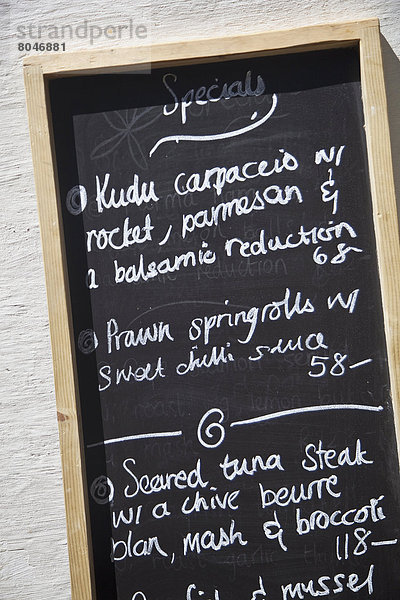 strandperle
8046881
Specials
Kudu carpaccio w/
rocket, parmesan &
a balsamic reduction
68-
Prawn springrolls w/
Sweet chilli sauce
58-
Seared tuna steak
w/ a chive beurre
blan, mash & broccoli
118-
& mussel